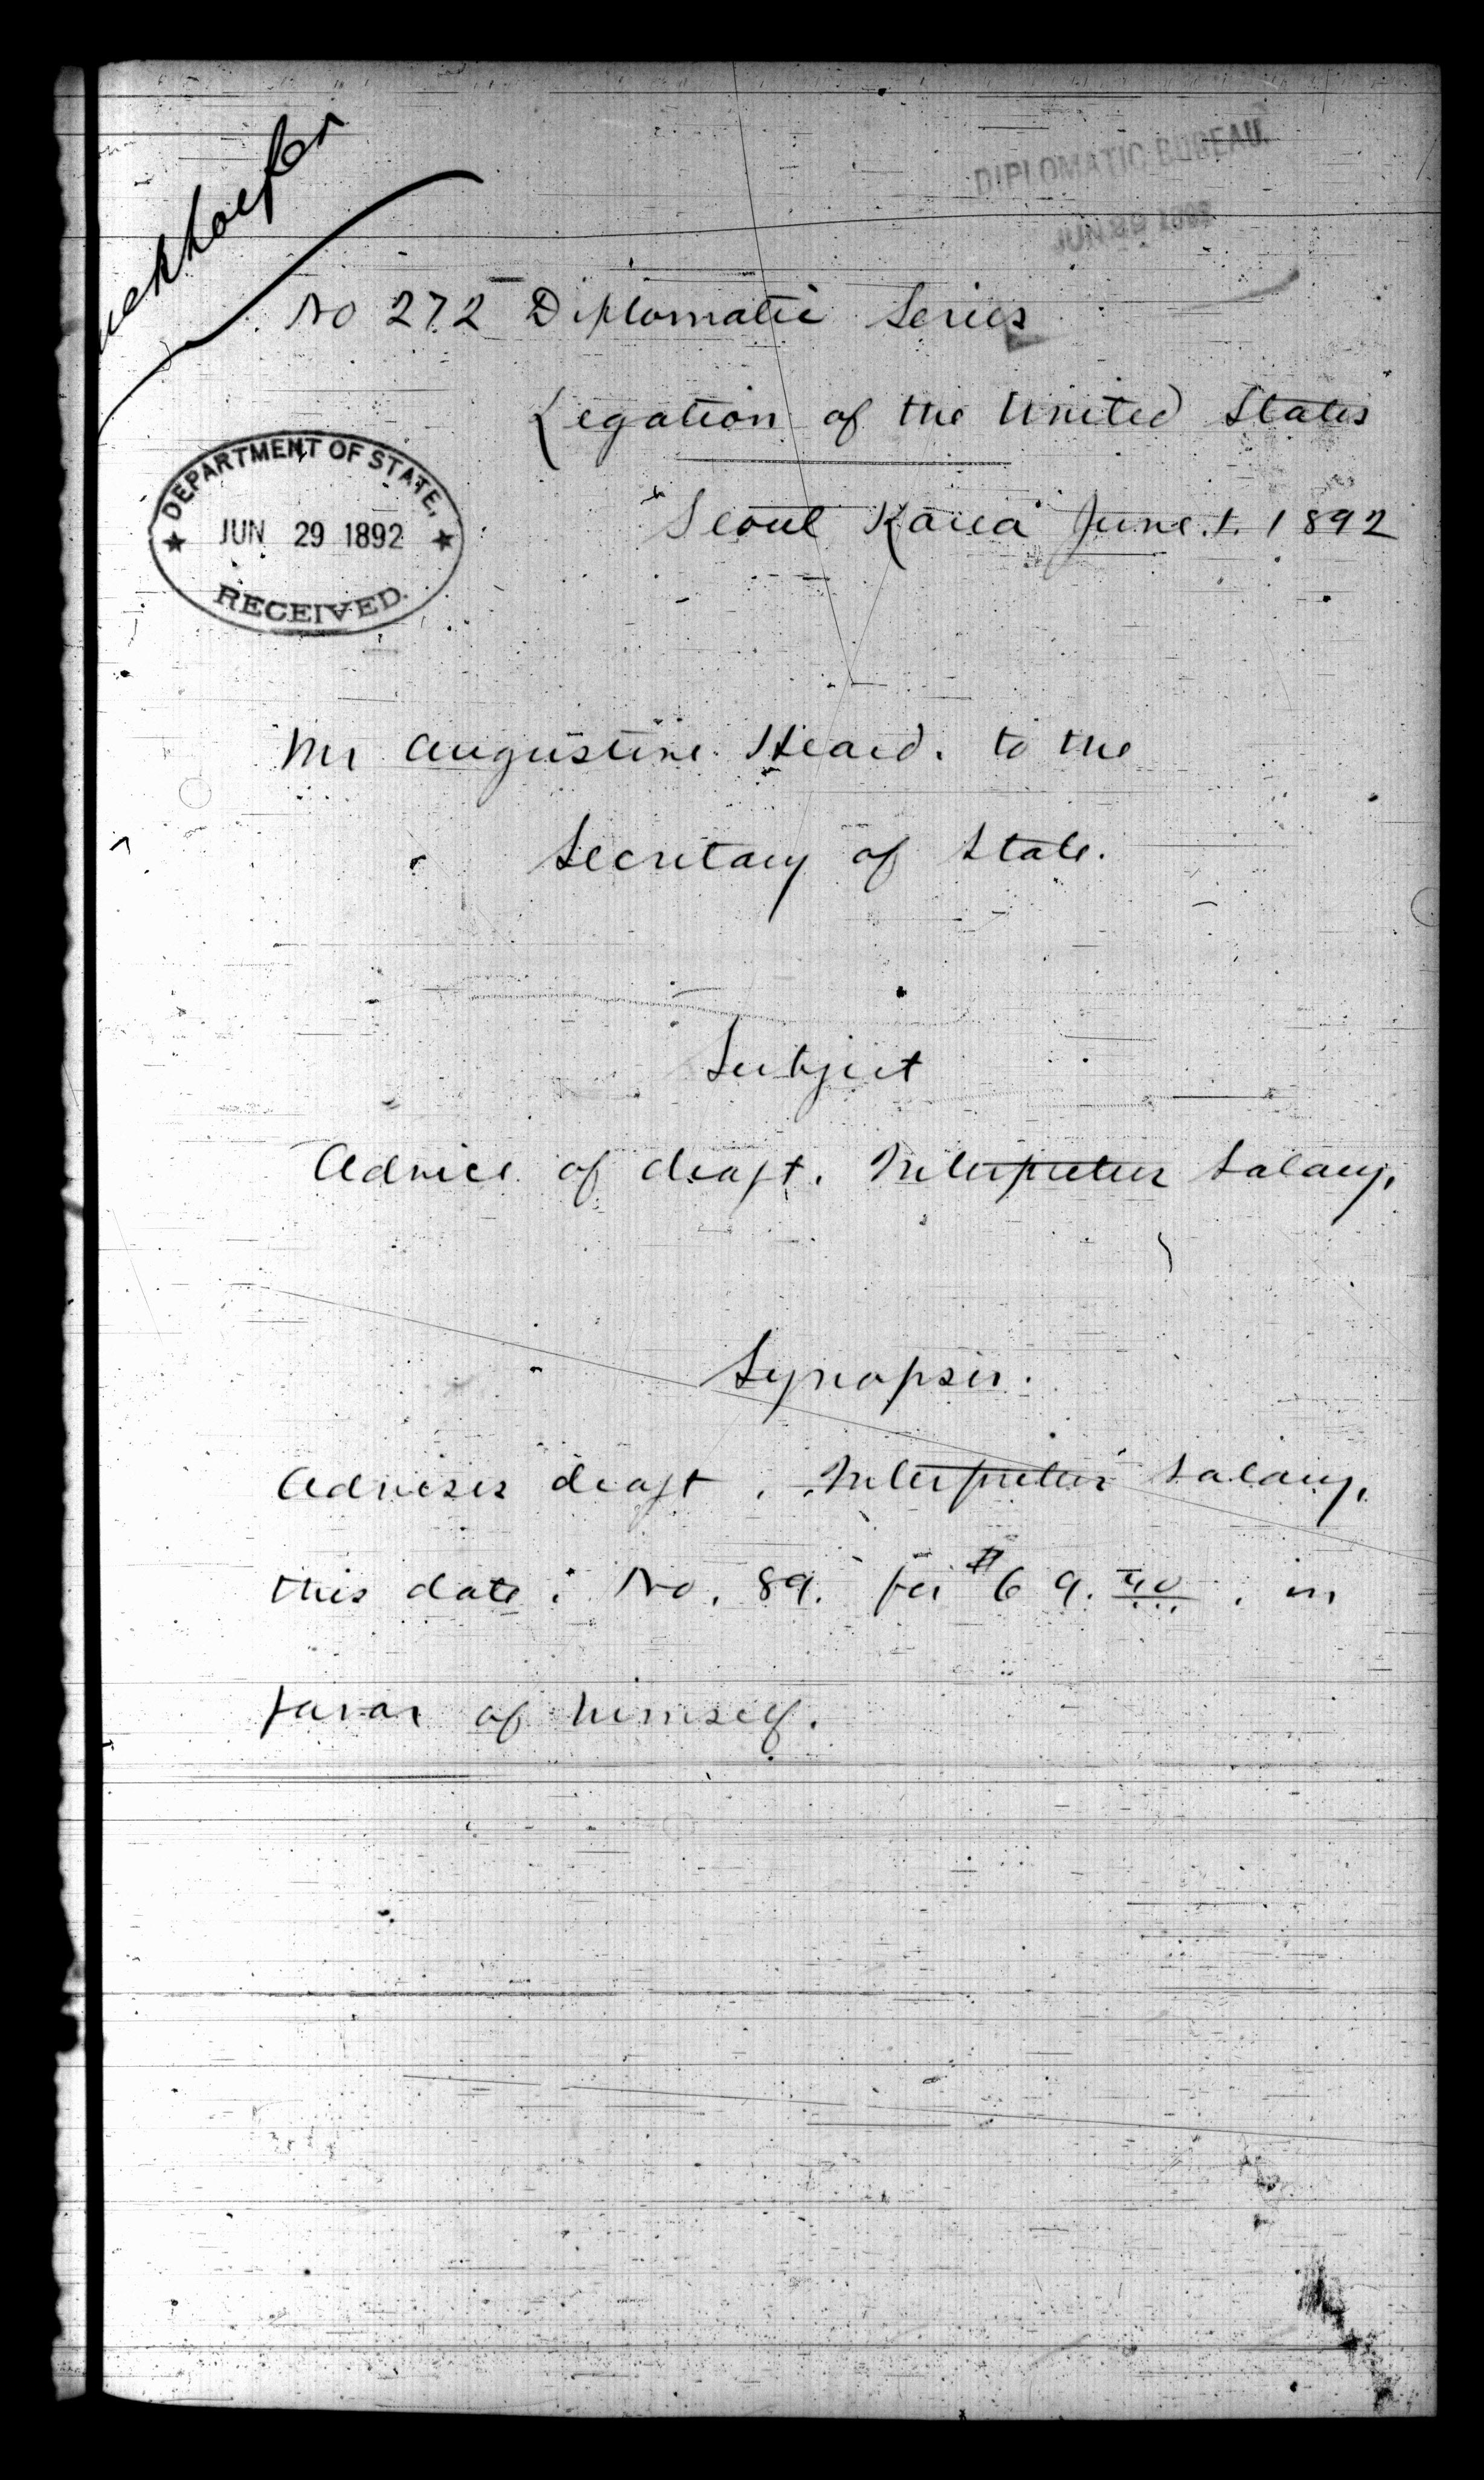 DIPLOMATIC BUREAU.
JUN 29 1892
No 272 Diplomatic Series
Legation of the United States
Seoul Korea June. 1. 1892
DEPARTMENT OF STATE,
JUN 29 1892
RECEIVED.
Mr Augustine Heard. to the
Secretary of State.
Subject
Advice of draft. Interpreter Salary.
Synopsis.
Advises draft. Interpreter Salary,
this date: No. 89. for $69. in
favor of himself.